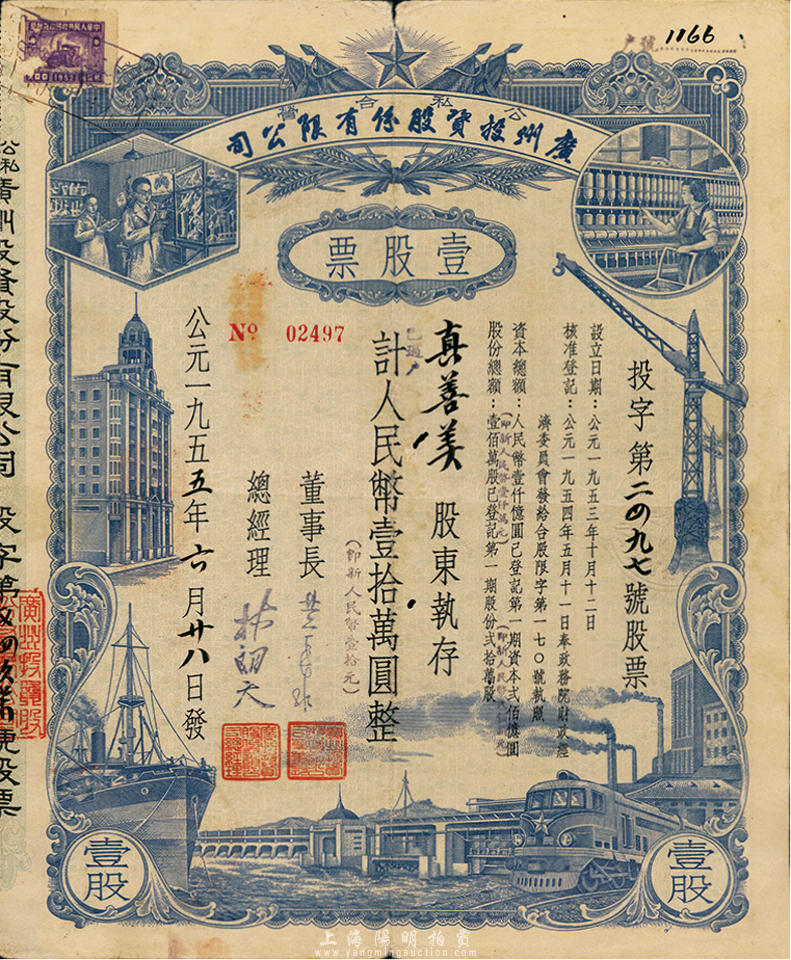 户號 1166
中華人民共和國印花稅票
1952
公私合營
廣州投資股份有限公司
壹股票
投字第二四九七號股票
設立日期：公元一九五三年十月十二日
核准登記：公元一九五四年五月十一日奉政務院財政經
濟委員會發給合股限字第一七〇號執照
資本總額：人民幣壹仟億圓已登記第一期資本弍佰億圓
(即新人民幣壹仟萬元)
股份總額：壹佰萬股已登記第一期股份弍拾萬股
真善美 股東執存
已過户
計人民幣壹拾萬圓整
(即新人民幣壹拾元)
董事長
總經理
№ 02497
公元一九五五年六月廿八日發
公私
廣州投資股份有限公司 投字第 號股票
廣州投資股
壹股
壹股
上海陽明拍賣
www.yangmingauction.com